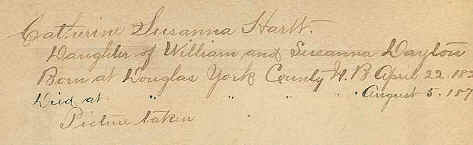 Catherine Susanna Hartt.
Daughter of William and Susanna Dayton
Born at Douglas York County N.B April 22. 182
Died at " " " " August 5. 187
Picture taken